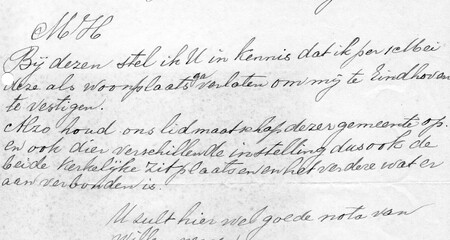 M H
Bij dezen stel ik U in kennis dat ik per 1 Mei
deze als woonplaats ga verlaten om mij te Eindhoven
te vestigen.
Alzo houd ons lidmaatschap dezer gemeente op.
en ook dier verschillende instelling dus ook de
beide Kerkelijke zitplaatsen en het verdere wat er
aan verbonden is.
U zult hier wel goede nota van